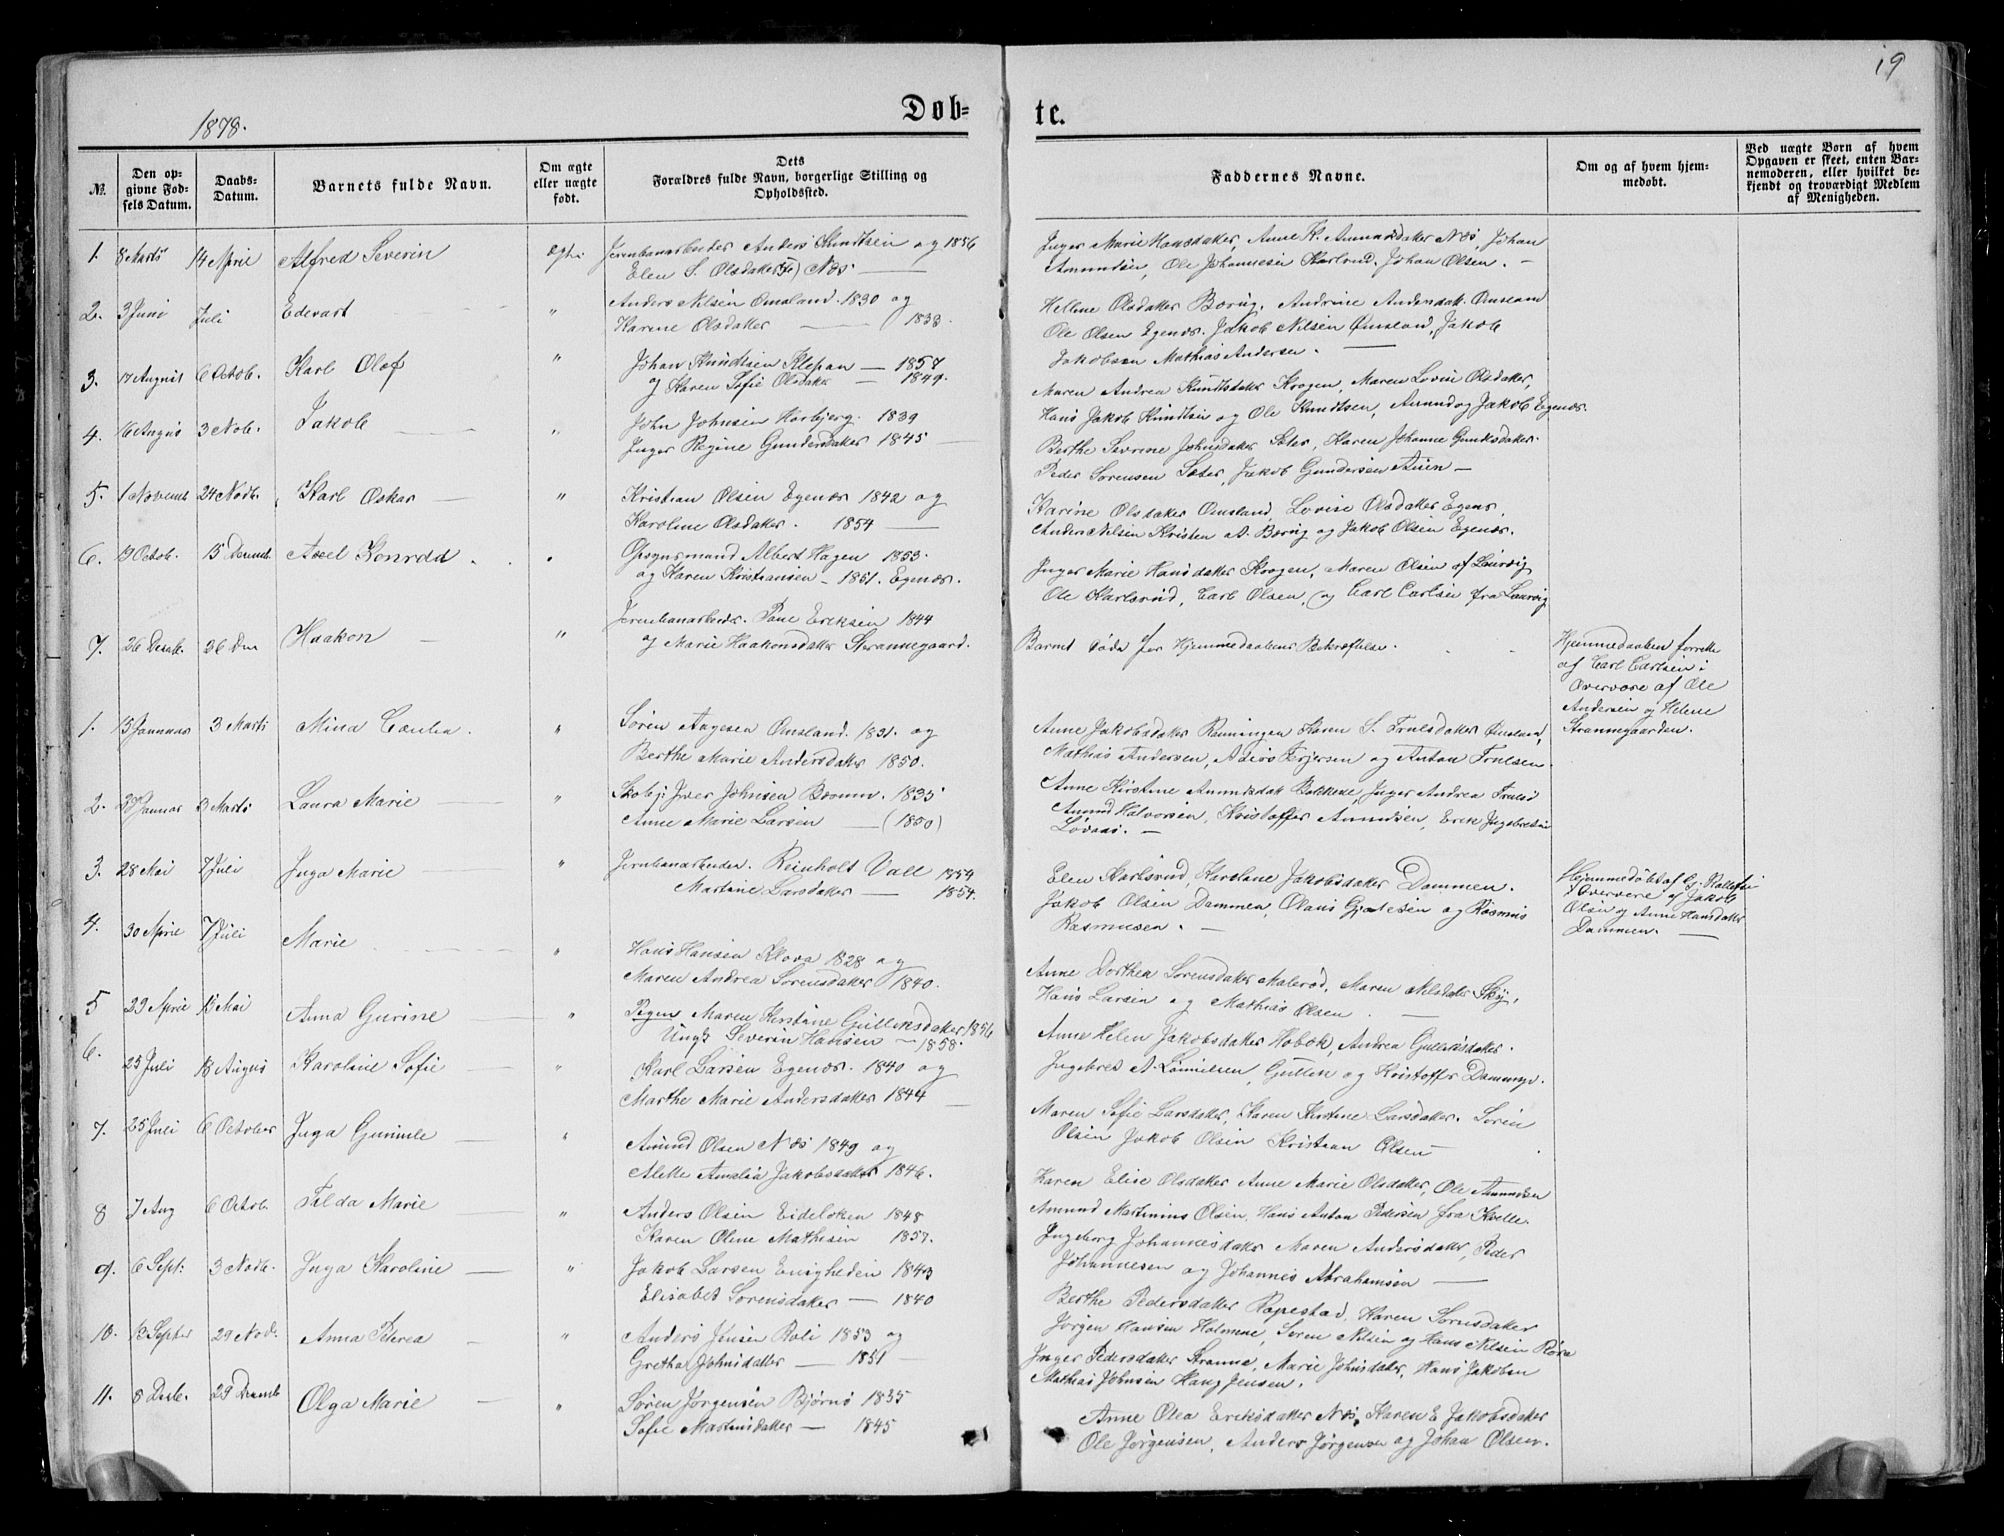 19
1878.
Døb-
te.
№.
Den op-
givne Fød-
sels Datum.
Daabs-
Datum.
Barnets fulde Navn.
Om ægte
eller uægte
født.
Dets
Forældres fulde Navn, borgerlige Stilling og
Opholdsted.
Faddernes Navne.
Om og af hvem hjem-
medøbt.
Ved uægte Børn af hvem
Opgaven er skeet, enten Bar-
nemoderen, eller hvilket be-
kjendt og troværdigt Medlem
af Menigheden.
1. 8 Marts 14 April Alfred Severin Jernbanarbeider Anders Kundtsen og 1856
Elen S. Olsdatter Næs.
Inger Marie Hansdatter, Anne K. Amundsdatter Næs, Johan
Amundsen, Ole Johannesen Karlsrud. Johan Olsen.
2. 3 Juni Juli Edevart " Anders Nilsen Omsland. 1830 og
Karine Olsdatter 1833.
Hellene Olsdatter Børug, Andrine Andersdatt. Omsland
Ole Olsen Egenæs. Jakob Nilsen Omsland, Jakob
Jakobsen Mathias Andersen.
3. 17 August 6 Octob. Karl Olof " Johan Kundtsen Klepan 1857
og Karen Sofie Olsdatter 1849.
Maren Andrea Kundtsdatter Krogen, Maren Lovise Olsdatter,
Hans Jakob Kundtsen og Ole Kundtsen, Amund og Jakob Egenæs.
4. 16 Augus 3 Nob. Jakob " John Johnsen Horbjerg. 1839
Inger Regine Gundersdatter 1845
Berthe Severine Johnsdatter Seter, Karen Johanne Gundersdatter.
Peder Sorensen Seter, Jakob Gundersen
5. 1 Novemb 24 Novb. Karl Oskar " Kristian Olsen Egenæs 1842 og
Karoline Olsdatter. 1854
Karine Olsdatter Omsland, Lovise Olsdatter Egenæs,
Anders Nilsen Kristen A. Børug og Jakob Olsen Egenæs.
6. 19 Octob. 15 Decemb. Axel Konrdd Albert Hagen 1853.
og Karen Kristiansen 1851. Egenæs.
Inger Marie Hansdatter Krogen, Maren Olsen af Laurvig
Ole Karlsrud, Carl Olsen, og Carl Carlsen fra Laurvig
7. 26 Decb. 26 Dec Haakon " Jernbanarbeider. Eriksen 1844
og Marie Haakonsdatter Strannegaard.
Barnet døde før Hjemmedaabens Bekræftelse.
Hjemmedaaben forrette
af Carl Carlsen i
Overvære af Ole
Andersen og Helene
Strannegaarden.
1. 15 Januar 3 Marts Mina " Søren Aagesen Omsland. 1831. og
Berthe Marie Andersdatter 1850.
Anne Jakobsdatter Rønningen Karen S. Trulsdatter Omsland,
Mathias Andersen, Terjersen og Anton Trulsen.
2. Januar 3 Marts Laura Marie " Iver Johnsen 1835
Anne Marie Larsen (1850)
Anne Kirstine Amundsdatt Bakkene, Inger Andrea Truls
Amund Halvorsen, Kristoffer Amundsen, Erik Ingebretsen
Løvaas.
3. 28 Mai 7 Juli Inga Marie " Jernbanearbeider. Reinholt Vall 1854
Martine Larsdatter 1854.
Elen Karlsrud, Karolane Jakobsdatter Dammen.
Jakob Olsen Dammen, Olaus og Rasmus
Rasmusen.
Hjemmedøbt af G. 
i Overvære af Jakob
Olsen og Anne Hansdatter
Dammen.
4. 30 April 7 Juli Marie " Hans Hansen Klova 1828 og
Maren Andrea Sorensdatter 1840.
Anne Dorthea Sorensdatter Malerød, Maren Nilsdatter Sky,
Hans Larsen og Mathias Olsen.
5 29 April 13 Mai Anna Gurine " Pigen Maren Kirstine Gulliksdatter 1856
Ungk Severin Hansen 1858.
Anne Helen Jakobsdatter Holbek, Andrea Gulliksdatter.
Ingebret A. Gullek og Kristoffer Dammyr.
6. 25 Juli 18 Augus Karoline Sofie " Karl Larsen Egenæs. 1840 og
Marthe Marie Andersdatter 1844
Maren Sofie Larsdatter, Karen Kirstine Larsdatter. Soren
Olsen Jakob Olsen Kristian Olsen
7. 25 Juli 6 October Inga Gunnile " Amund Olsen Næs 1849 og
Alette Amalia Jakobsdatter 1846.
Karen Elise Olsdatter Anne Marie Olsdatter, Ole Amundsen
Amund Martinius Olsen, Hans Anton Pedersen fra Kvelle.
8 7 Aug 6 Octob. Tilda Marie " Anders Olsen Eideloken 1848
Karen Oline Mathisen 1857.
Ingeborg Johannesdatter Maren Andersdatter, Peder
Johannesen og Johannes Abrahamsen
9. 6 Sept. 3 Novb. Inga Karoline " Jakob Larsen Enigheden 1843
Elisabet Sorensdatter 1840
Berthe Pedersdatter Ropestad, Karen Sornsdatter
Jørgen Hansen Holmene, Soren Nilsen og Hans Nilsen Røra
10. 13 Septer 29 Nov. Anna Peterea " Anders Jensen Roli 1853 og
Gretha Johnsdatter 1851
Inger Pedersdatter Stranna, Marie Johnsdatter, Hans Jakobsen
Mathias Johnsen Haug Jensen.
11. 8 Decb. 29 Decemb Olga Marie " Søren Jørgensen Bjørnø 1835
Sofie Martinsdatter 1845
Anne Olea Eriksdatter Næs, Karen E Jakobsdatter
Ole Jørgensen, Anders Jørgensen og Johan Olsen.